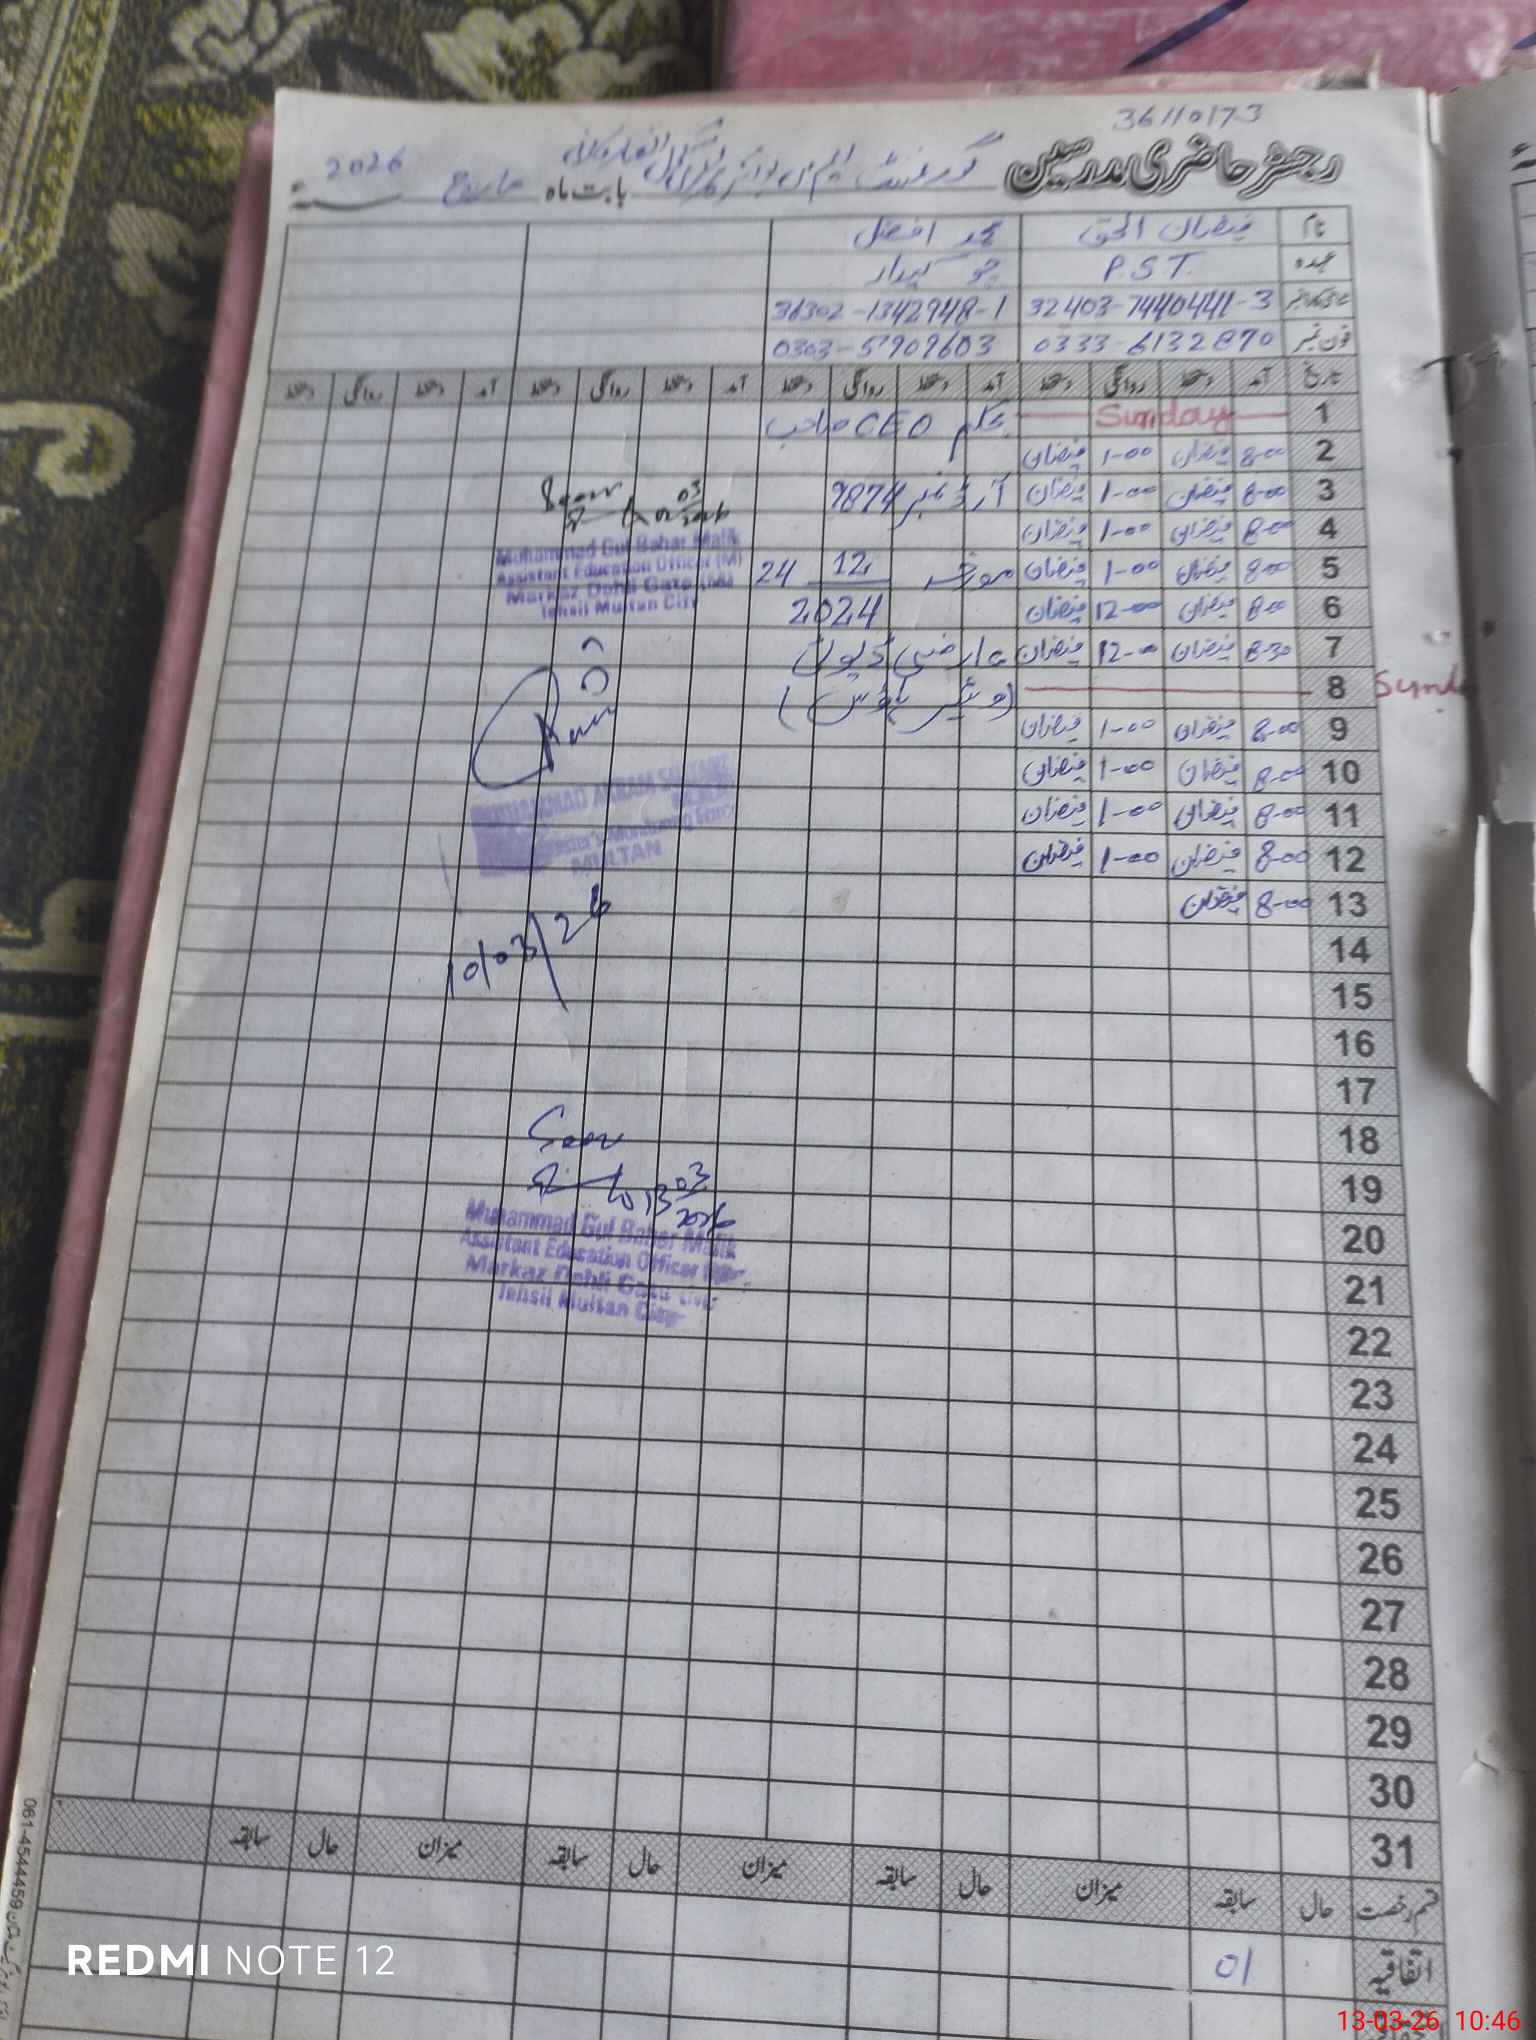 36110173
رجسٹر حاضری مدرسین گورنمنٹ ایم سی بوائز پرائمری سکول بابت ماہ مارچ 2026
نام فیضان الحق محمد افضل
عہدہ P.S.T. چوکیدار
شناختی کارڈ نمبر 32403-7440441-3 36302-1342948-1
فون نمبر 0333-6132870 0303-5909603
تاریخ آمد دستخط روانگی دستخط آمد دستخط روانگی دستخط آمد دستخط روانگی دستخط آمد دستخط روانگی دستخط
1 Sunday بحکم CEO صاحب
2 8-00 فیضان 1-00 فیضان
3 8-00 فیضان 1-00 فیضان آرڈر نمبر 9874
4 8-00 فیضان 1-00 فیضان
5 8-00 فیضان 1-00 فیضان مورخہ 24 12
6 8-00 فیضان 12-00 فیضان 2024
7 8-30 فیضان 12-00 فیضان عارضی ڈیوٹی
8 Sund (ویئر ہاؤس)
9 8-00 فیضان 1-00 فیضان
10 8-00 فیضان 1-00 فیضان
11 8-00 فیضان 1-00 فیضان
12 8-00 فیضان 1-00 فیضان
13 8-00 فیضان
14
15
16
17
18
19
20
21
22
23
24
25
26
27
28
29
30
31
Seen
03
2026
Muhammad Gul Bahar Malik
Assistant Education Officer (M)
Markaz Dehli Gate (M)
Tehsil Multan City
MUHAMMAD AKRAM SULTAN
Monitoring Force
MULTAN
10/03/26
Seen
13 03
2026
Muhammad Gul Bahar Malik
Assistant Education Officer
Markaz Dehli Gate (M)
Tehsil Multan City
قسم رخصت حال سابقہ میزان حال سابقہ میزان حال سابقہ میزان حال سابقہ
اتفاقیہ 01
061-4544459
REDMI NOTE 12
13-03-26 10:46